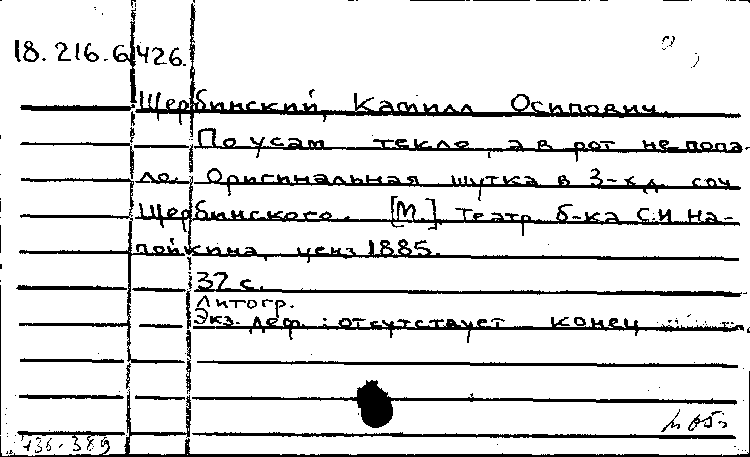 18.216.6.426.
Щербинский, Камилл Осипович.
По усам текло, а в рот не попа-
ло. Оригинальная шутка в 3-х д. соч
Щербинского. [М.] Театр. б-ка С.И На-
пойкина, ценз 1885.
32 с.
Литогр.
Экз. деф.: отсутствует конец
436-389